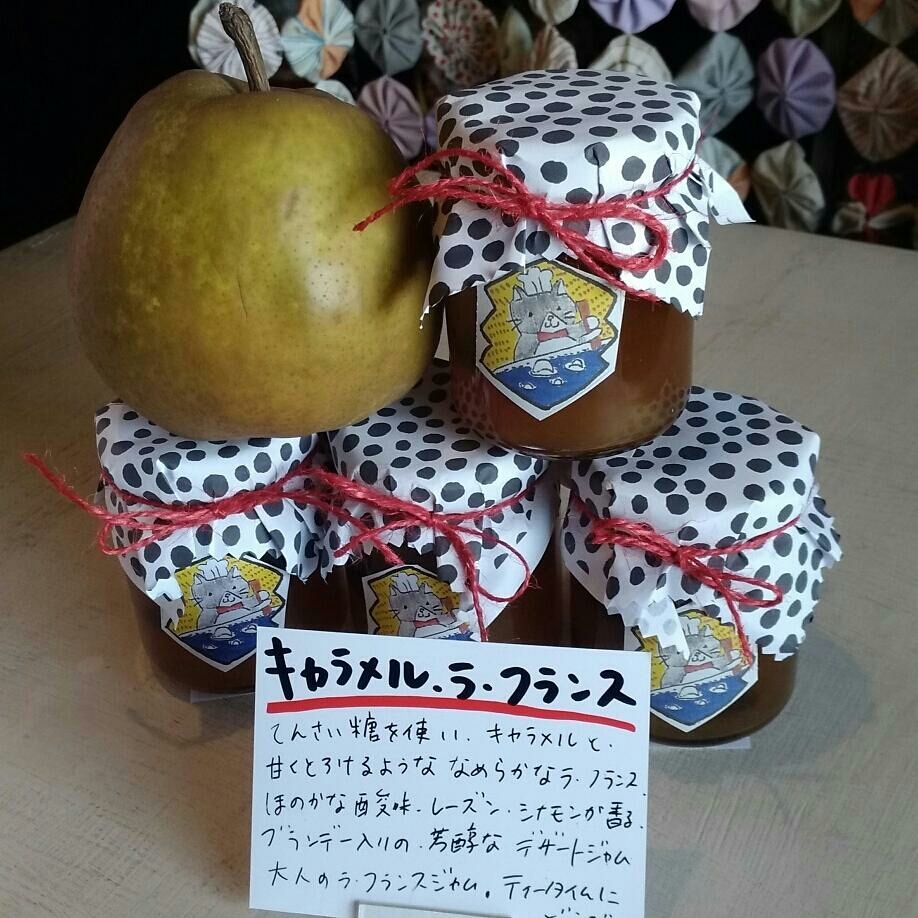 キャラメル・ラ・フランス
てんさい糖を使い、キャラメルと、
甘くとろけるような なめらかなラ・フランス
ほのかな酸味、レーズン・シナモンが香る、
ブランデー入りの、芳醇な デザートジャム
大人のラ・フランスジャム。ティータイムに